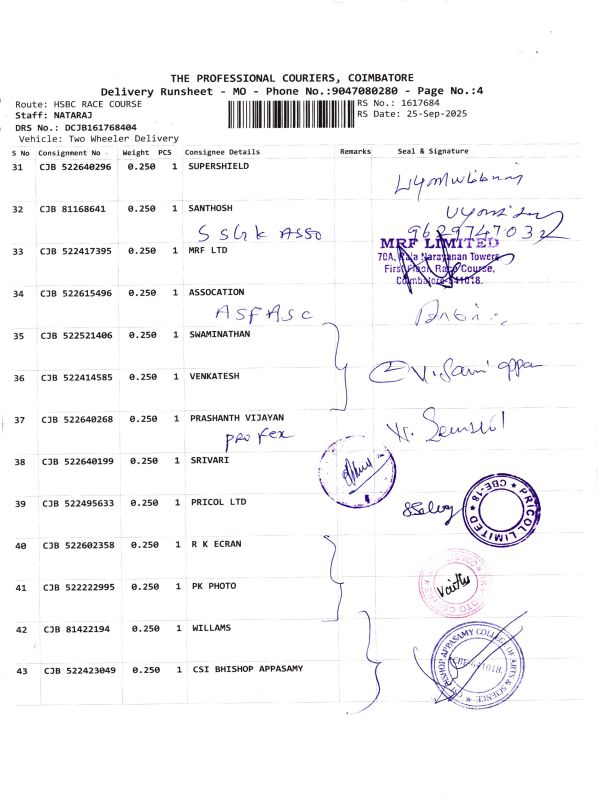 THE PROFESSIONAL COURIERS, COIMBATORE
Delivery Runsheet - MO - Phone No.:9047080280 - Page No.:4
Route: HSBC RACE COURSE RS No.: 1617684
Staff: NATARAJ RS Date: 25-Sep-2025
DRS No.: DCJB161768404
Vehicle: Two Wheeler Delivery
S No Consignment No Weight PCS Consignee Details Remarks Seal & Signature
31 CJB 522640296 0.250 1 SUPERSHIELD
32 CJB 81168641 0.250 1 SANTHOSH
S SGK ASSO 9629747032
33 CJB 522417395 0.250 1 MRF LTD
MRF LIMITED
70A, Raja Narayanan Towers
First Floor, Race Course,
Coimbatore-641018.
34 CJB 522615496 0.250 1 ASSOCATION
ASFASC
35 CJB 522521406 0.250 1 SWAMINATHAN
36 CJB 522414585 0.250 1 VENKATESH
37 CJB 522640268 0.250 1 PRASHANTH VIJAYAN
profex
38 CJB 522640199 0.250 1 SRIVARI
39 CJB 522495633 0.250 1 PRICOL LTD
PRICOL LIMITED CBE-18
40 CJB 522602358 0.250 1 R K ECRAN
41 CJB 522222995 0.250 1 PK PHOTO
42 CJB 81422194 0.250 1 WILLAMS
43 CJB 522423049 0.250 1 CSI BHISHOP APPASAMY
BISHOP APPASAMY COLLEGE OF ARTS & SCIENCE